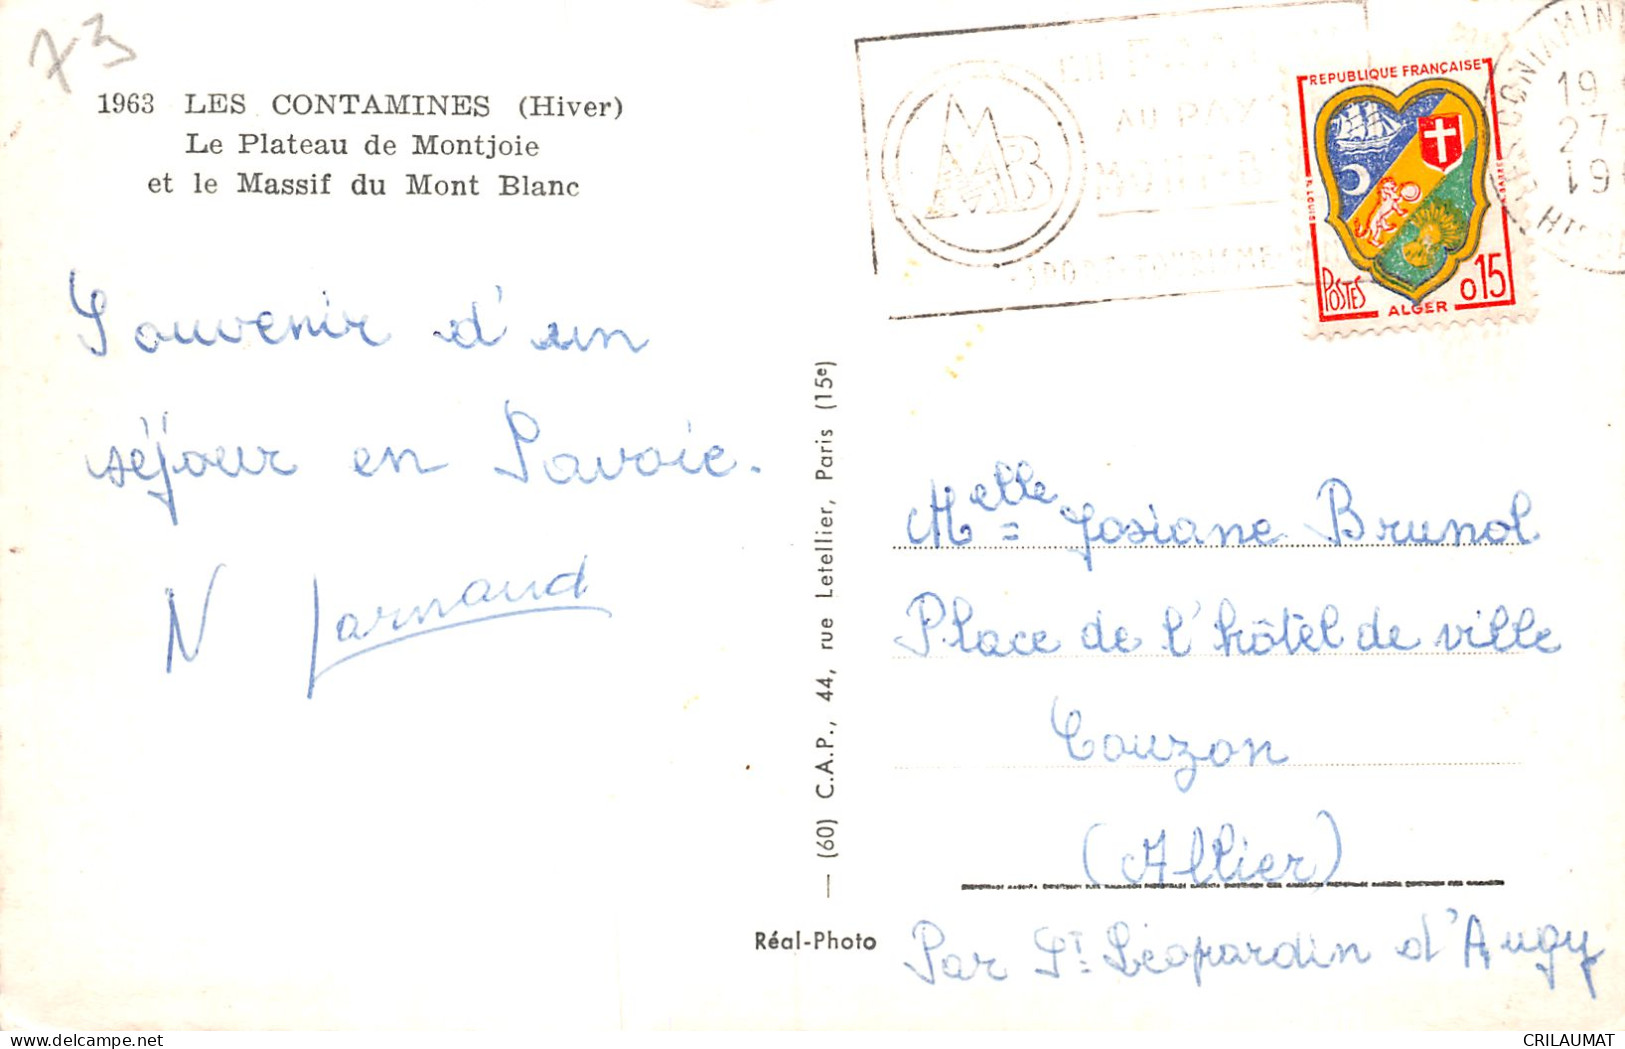 73
1963 LES CONTAMINES (Hiver)
Le Plateau de Montjoie
et le Massif du Mont Blanc
Souvenir d'un
séjour en Savoie.
N Jarnaud
— (60) C.A.P., 44, rue Letellier, Paris (15e)
Réal-Photo
AU PAY
MB
REPUBLIQUE FRANÇAISE
POSTES
ALGER
0,15
19
27
196
Melle Josiane Brunol
Place de l'hôtel de ville
Couzon
(Allier)
Par St Léopardin d'Augy
CRILAUMAT